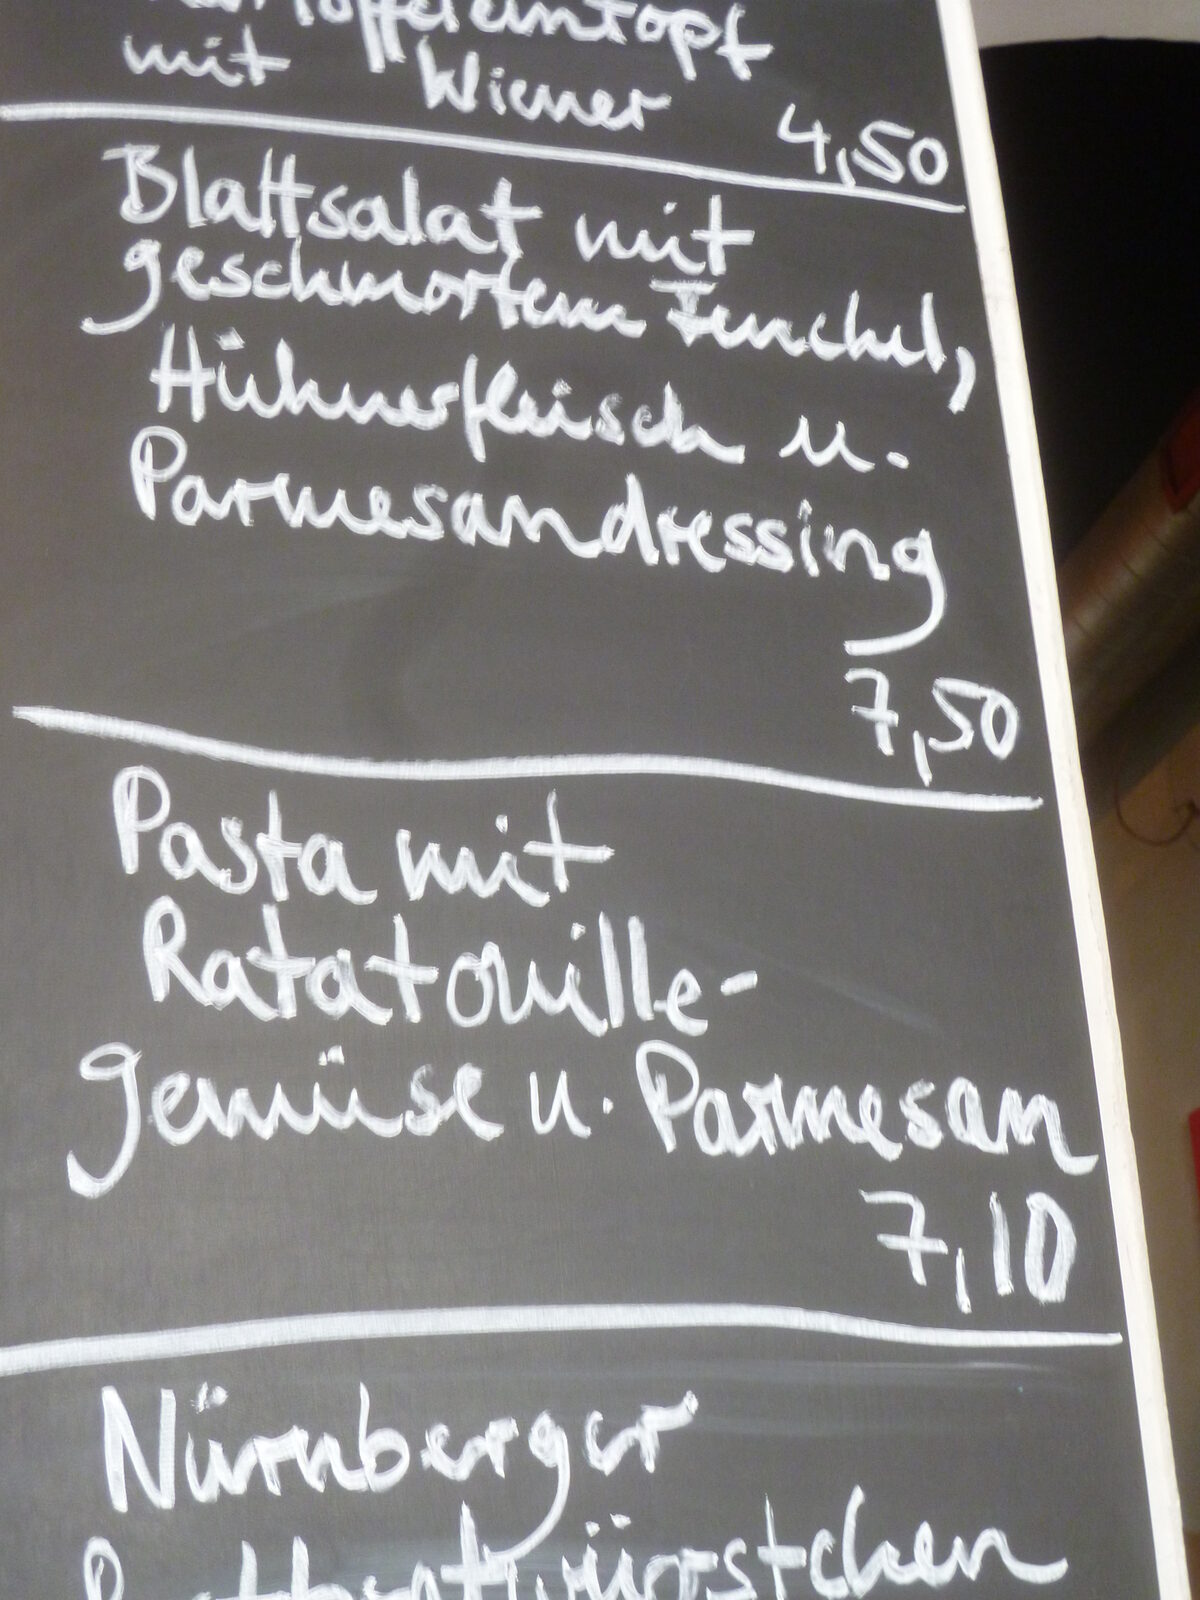 Kartoffeleintopf
mit Wiener
4,50
Blattsalat mit
geschmortem Fenchel,
Hühnerfleisch u.
Parmesandressing
7,50
Pasta mit
Ratatouille-
gemüse u. Parmesan
7,10
Nürnberger
Rostbratwürstchen